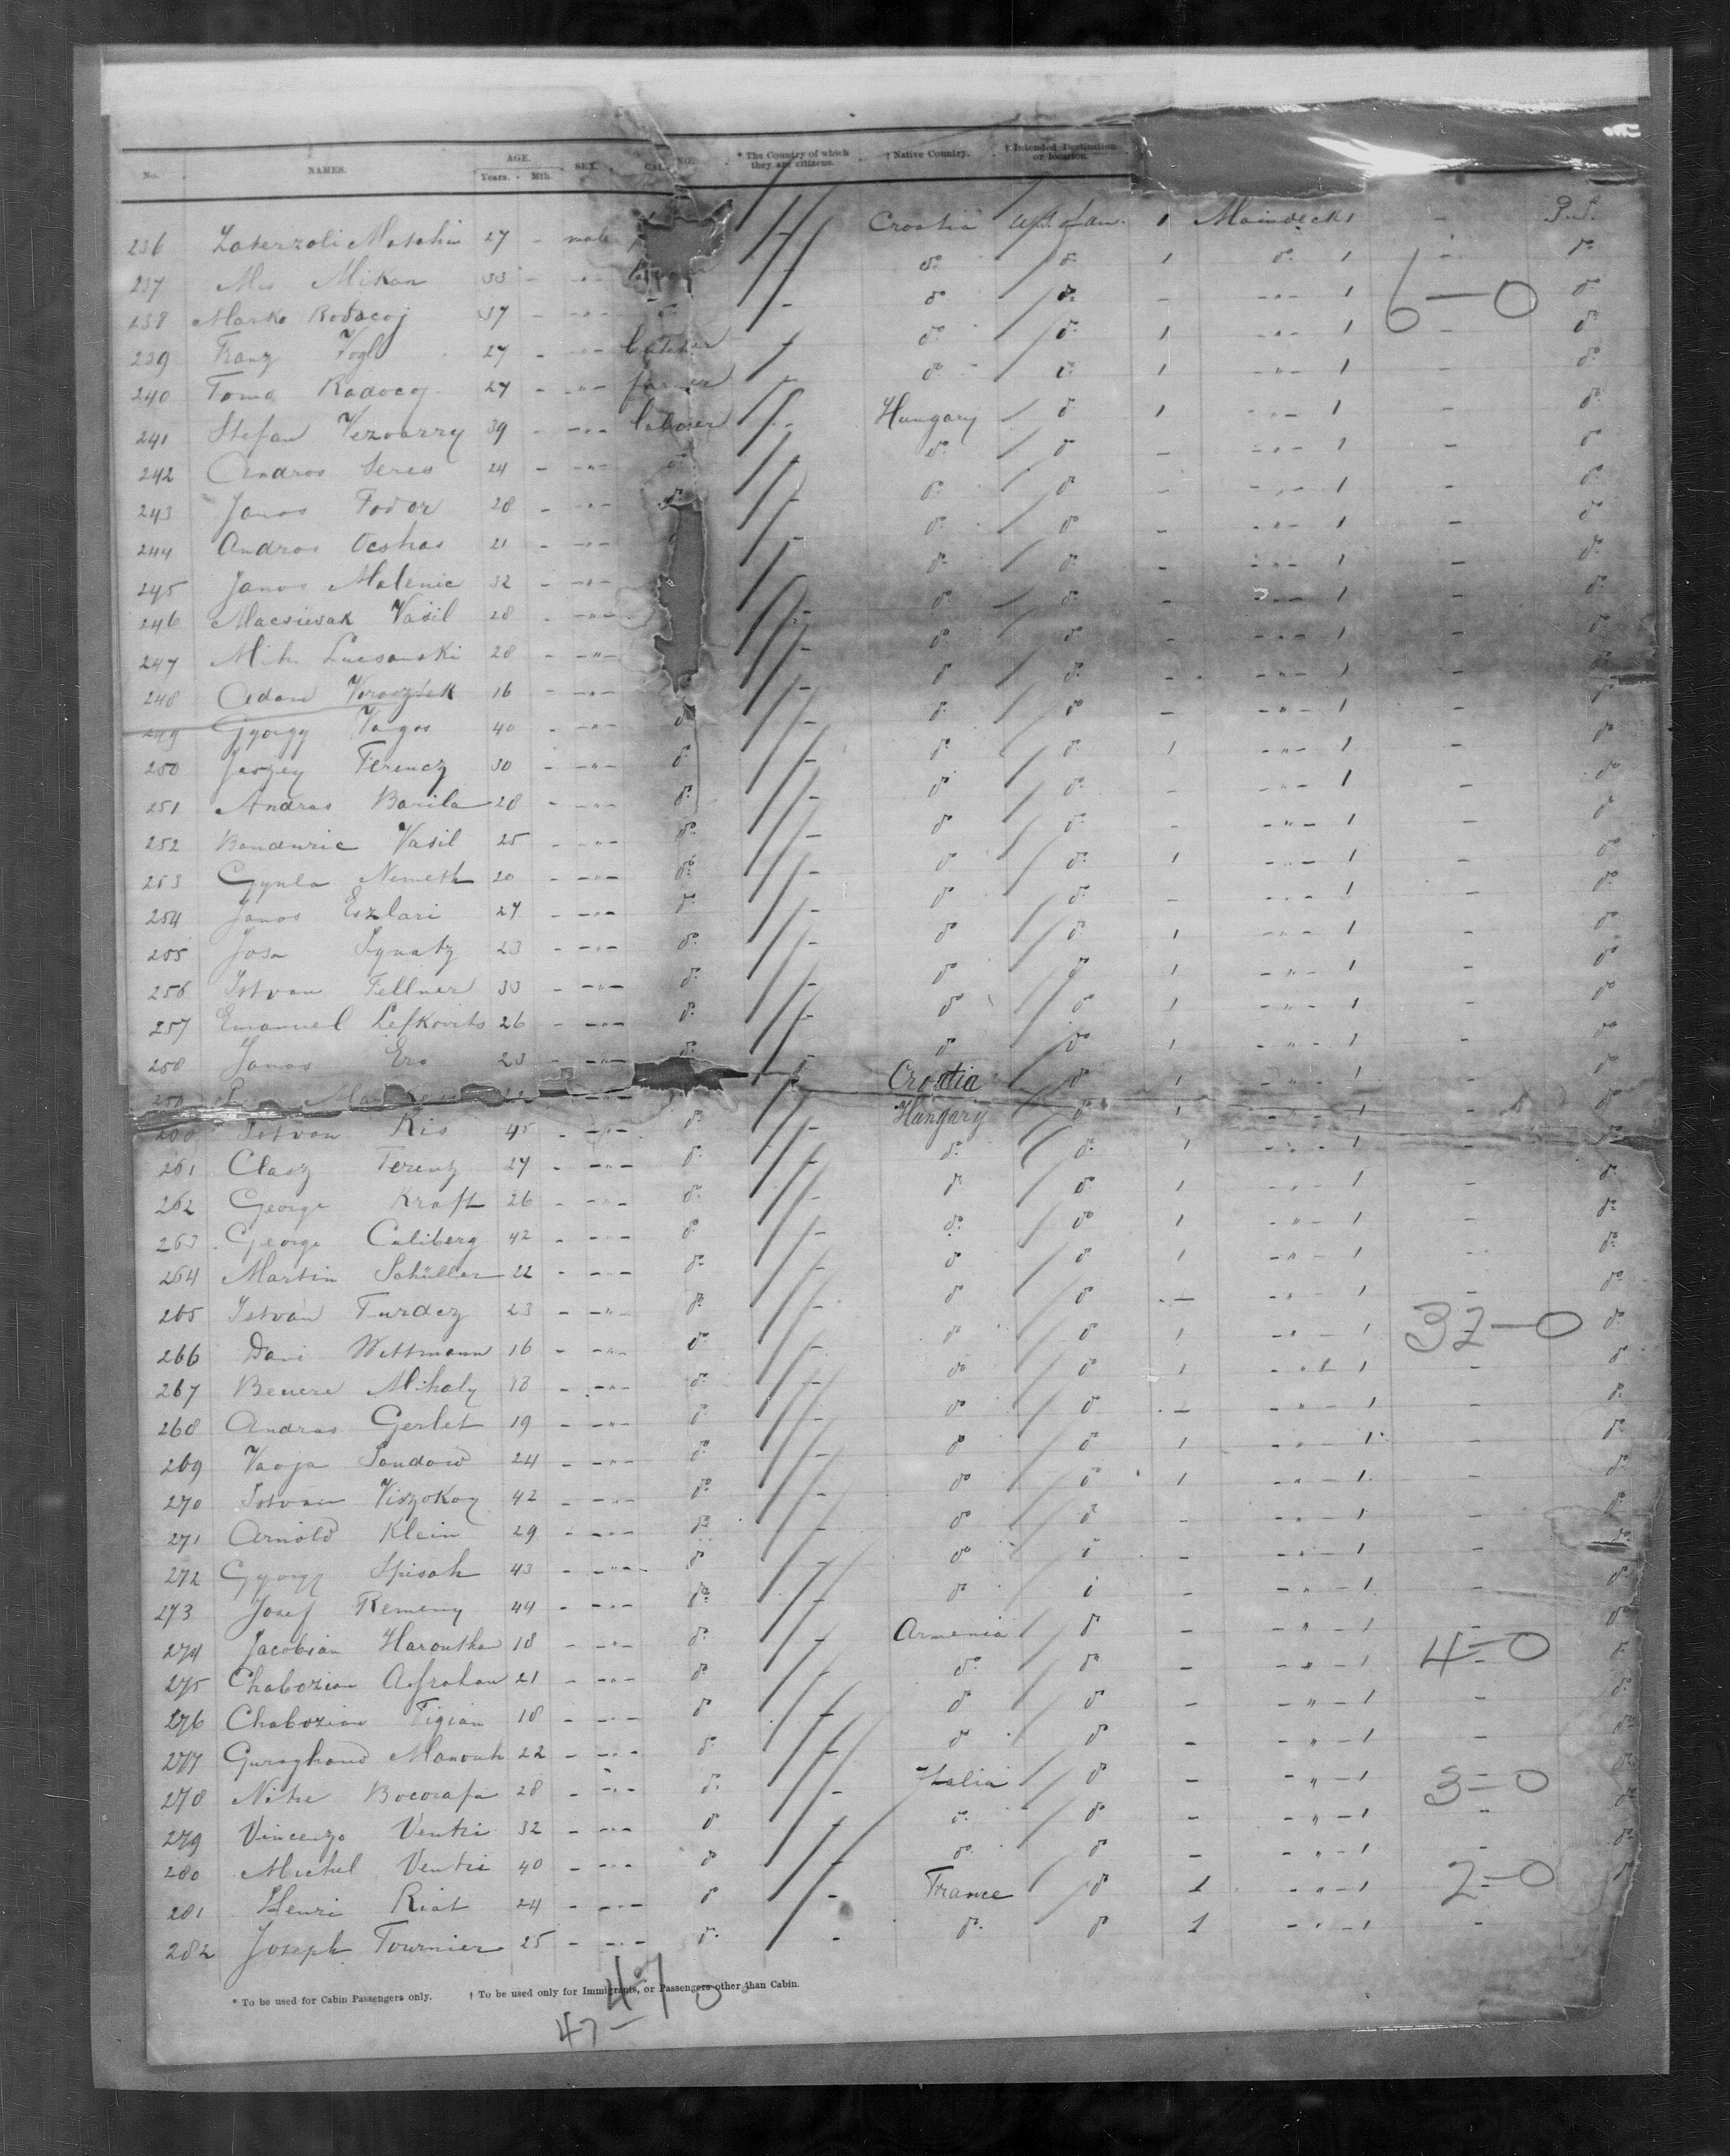 No. NAMES. AGE. Years. Mth. SEX. CAL NO. * The Country of which they are citizens. † Native Country. † Intended Destination or location.
236 Matahin 27 - male Croatia U.S. of Am. 1 Maindeck 1 - P.S.
237 Mikan 33 - -"- do do 1 do 1 - do
6-0
238 Marko Rodocoj 37 - -"- do do - -"- 1 do
239 Franz Vogl 27 - -"- butcher do do 1 -"- 1 - do
240 Toma Radocoj 27 - -"- farmer do do 1 -"- 1 - do
241 Stefan Vezvarry 39 - -"- laborer Hungary do 1 -"- 1 - do
242 Andros Seres 24 - -"- do do do - -"- 1 - do
243 Janos Fodor 28 - -"- do do do - -"- 1 - do
244 Andros 21 - -"- do do - -"- 1 - do
245 Janos Malenic 32 - -"- do do - -"- 1 - do
246 Vasil 28 - -"- do do - -"- 1 do
247 Mih. Lucsanski 28 - -"- do do - -"- 1 do
248 Adam 16 - -"- do do - -"- 1 do
249 Gyorgy Vargos 40 - -"- do do do - -"- 1 - do
250 Ferencz 30 - -"- do do do 1 -"- 1 - do
251 Andras Barila 28 - -"- do do do - -"- 1 - do
252 Banduric Vasil 25 - -"- do do do - -"- 1 - do
253 Gyula Nemeth 20 - -"- do do do 1 -"- 1 - do
254 Janos Eszlari 27 - -"- do do do - -"- 1 - do
255 Josa Ignatz 23 - -"- do do do 1 -"- 1 - do
256 Istvan Fellner 33 - -"- do do do 1 -"- 1 - do
257 Emanuel Lefkovits 26 - -"- do do do 1 -"- 1 - do
258 Janos Ero 23 - -"- do do do 1 -"- 1 - do
259 Croatia do 1 -"- 1 - do
260 Istvan Kis 45 - -"- do Hungary do 1 -"- 1 - do
261 Clasz Ferenz 27 - -"- do do do 1 -"- 1 do
262 George Kraft 26 - -"- do do do 1 -"- 1 - do
263 George Caliberg 42 - -"- do do do 1 -"- 1 - do
264 Martin Schüller 22 - -"- do do do 1 -"- 1 - do
265 Istvan Turdez 23 - -"- do do do - -"- 1 - do
32-0
266 Davi Wettmann 16 - -"- do do do 1 -"- 1 do
267 Benere Mihaly 18 - -"- do do do 1 -"- 1 - do
268 Andras Gerlet 19 - -"- do do do - -"- 1 - do
269 Sandow 24 - -"- do do do 1 -"- 1 - do
270 Istvan Viszokay 42 - -"- do do do 1 -"- 1 - do
271 Arnold Klein 29 - -"- do do do - -"- 1 - do
272 Gyorgy Spisak 43 - -"- do do do - -"- 1 - do
273 Josef Remeny 44 - -"- do do do - -"- 1 - do
274 Jacobian Harouthan 18 - -"- do Armenia do - -"- 1 - do
4-0
275 Chabozian 21 - -"- do do do - -"- 1 do
276 Chabozian Tigian 18 - -"- do do do - -"- 1 - do
277 Manouk 22 - -"- do do do - -"- 1 - do
278 28 - -"- do Italia do - -"- 1 do
3-0
279 Vincenzo Ventri 32 - -"- do do do - -"- 1 - do
280 Michel Ventri 40 - -"- do do do - -"- 1 - do
281 Henri Riat 24 - -"- do France do 1 -"- 1 do
2-0
282 Joseph Tournier 25 - -"- do do do 1 -"- 1 -
* To be used for Cabin Passengers only. † To be used only for Immigrants, or Passengers other than Cabin.
47 0
47 -